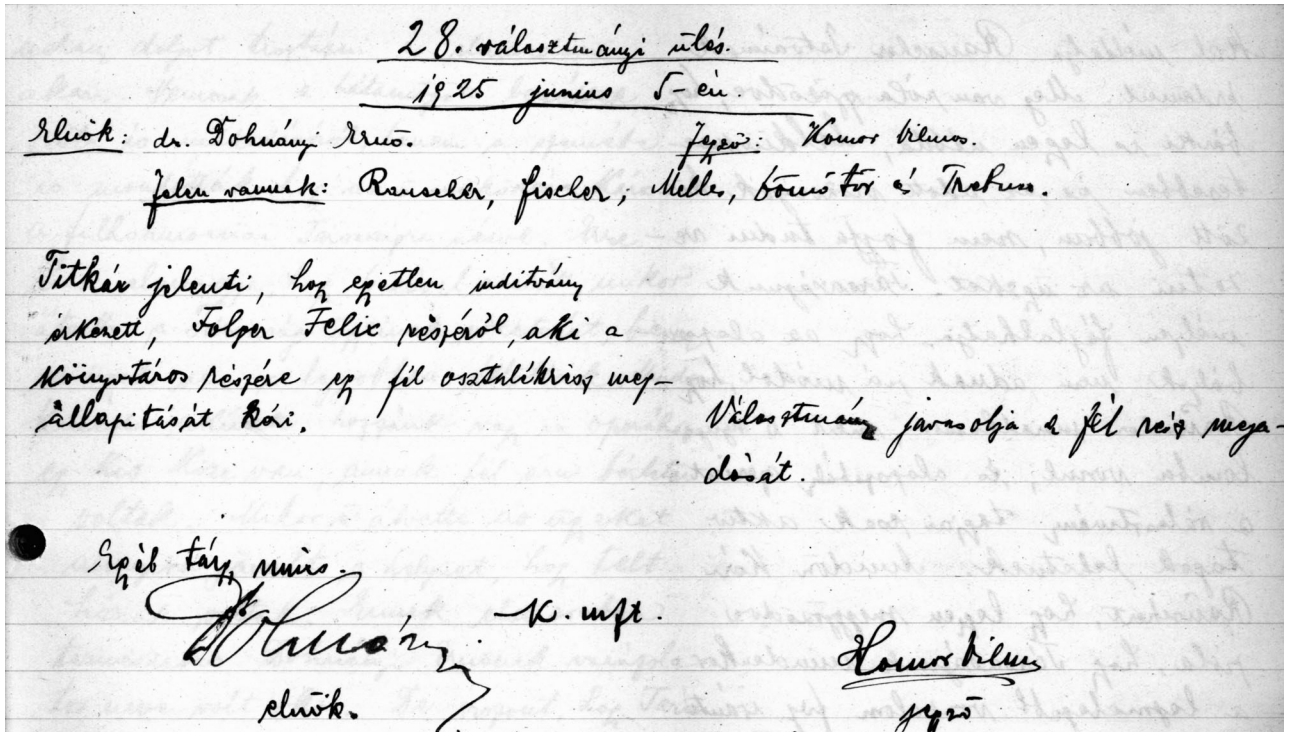 28. választmányi ülés.
1925 junius 5-én
Elnök: dr. Dohnányi Ernő. Jegyző: Komor Vilmos.
Jelen vannak: Rauscher, Fischer, Melles, Gömöőr és Trebuss.
Titkár jelenti, hogy egyetlen inditvány
érkezett, Folger Felix részéről, aki a
Könyvtáros részére egy fél osztalékrész meg-
állapitását kéri.
Választmány javasolja a fél rész mega-
dását.
Egyéb tárgy nincs.
K. mft.
Dohnányi
elnök.
Komor Vilmos
jegyző